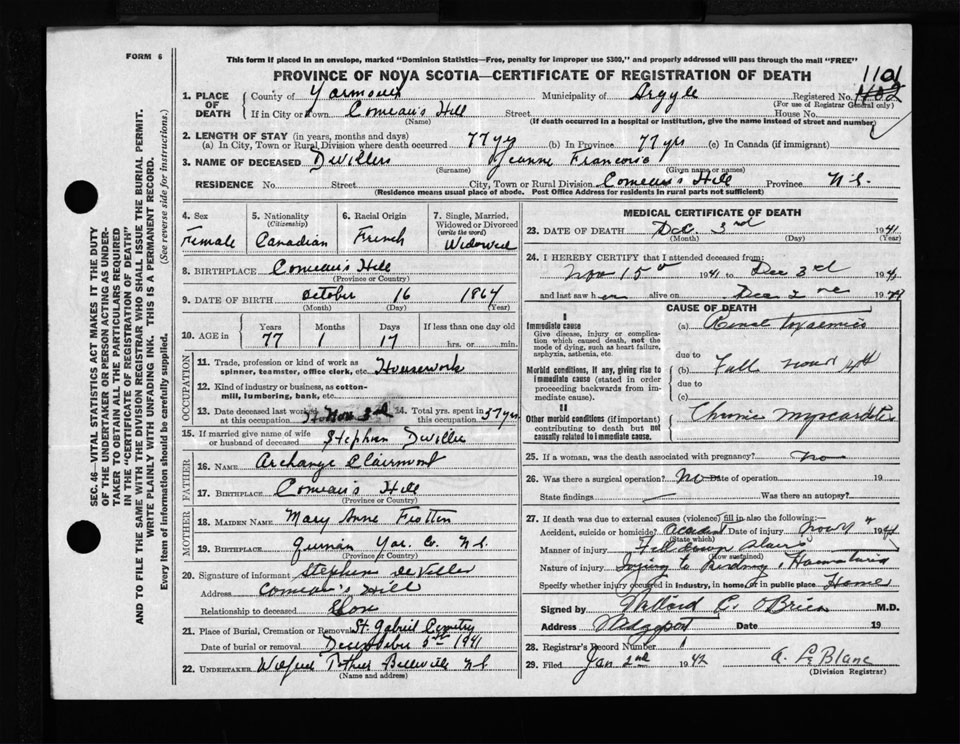 FORM 6
This form if placed in an envelope, marked "Dominion Statistics—Free, penalty for improper use $300," and properly addressed will pass through the mail "FREE"
PROVINCE OF NOVA SCOTIA—CERTIFICATE OF REGISTRATION OF DEATH
1101
1. PLACE OF DEATH County of Yarmouth Municipality of Argyle Registered No. 1102
(For use of Registrar General only)
If in City or Town Comeau's Hill Street House No.
(Name) (If death occurred in a hospital or institution, give the name instead of street and number)
2. LENGTH OF STAY (in years, months and days)
(a) In City, Town or Rural Division where death occurred 77 yrs (b) In Province 77 yrs (c) In Canada (if immigrant)
3. NAME OF DECEASED Devillers Jeanne
(Surname) (Given name or names)
RESIDENCE No. Street City, Town or Rural Division Comeau's Hill Province N.S.
(Residence means usual place of abode. Post Office Address for residents in rural parts not sufficient)
4. Sex Female
5. Nationality (Citizenship) Canadian
6. Racial Origin French
7. Single, Married, Widowed or Divorced (write the word) Widowed
8. BIRTHPLACE Comeau's Hill
(Province or Country)
9. DATE OF BIRTH October 16 1864
(Month) (Day) (Year)
10. AGE in Years 77 Months 1 Days 17 If less than one day old hrs. or min.
OCCUPATION
11. Trade, profession or kind of work as spinner, teamster, office clerk, etc. Housework
12. Kind of industry or business, as cotton-mill, lumbering, bank, etc.
13. Date deceased last worked at this occupation Nov 3rd 14. Total yrs. spent in this occupation 57 yrs
15. If married give name of wife or husband of deceased Stephen
FATHER
16. NAME Archange Clairmont
17. BIRTHPLACE Comeau's Hill
(Province or Country)
MOTHER
18. MAIDEN NAME Mary Anne Frotten
19. BIRTHPLACE Yar. Co. N.S.
(Province or Country)
20. Signature of informant Stephen deViller
Address Comeau's Hill
Relationship to deceased Son
21. Place of Burial, Cremation or Removal St. Gabriel Cemetry
Date of burial or removal December 5th 1941
22. UNDERTAKER Wilfred Pothier Belleville N.S.
(Name and address)
MEDICAL CERTIFICATE OF DEATH
23. DATE OF DEATH Dec. 3rd 1941
(Month) (Day)
24. I HEREBY CERTIFY that I attended deceased from:
Nov 15th 1941 to Dec 3rd 1941
and last saw her alive on Dec 2nd 1941
CAUSE OF DEATH
I
Immediate cause
Give disease, injury or complication which caused death, not the mode of dying, such as heart failure, asphyxia, asthenia, etc.
(a) Renal
due to
Morbid conditions, if any, giving rise to immediate cause (stated in order proceeding backwards from immediate cause).
(b) Fall Nov 4th
due to
(c)
II
Other morbid conditions (if important) contributing to death but not causally related to immediate cause.
Chronic Myocarditis
25. If a woman, was the death associated with pregnancy? No
26. Was there a surgical operation? No Date of operation 19
State findings Was there an autopsy?
27. If death was due to external causes (violence) fill in also the following:
Accident, suicide or homicide? Accident Date of injury Nov 4th 1941
(State which)
Manner of injury Fell down stairs
(How sustained)
Nature of injury Injury to Kidney, Hematuria
Specify whether injury occurred in industry, in home, or in public place Home
Signed by Willard C. O'Brien M.D.
Address Wedgeport Date 19
28. Registrar's Record Number 1
29. Filed Jan 2nd 1942 A. LeBlanc
(Division Registrar)
SEC. 46—VITAL STATISTICS ACT MAKES IT THE DUTY
OF THE UNDERTAKER OR PERSON ACTING AS UNDER-
TAKER TO OBTAIN ALL THE PARTICULARS REQUIRED
IN THE "CERTIFICATE OF REGISTRATION OF DEATH"
AND TO FILE THE SAME WITH THE DIVISION REGISTRAR WHO SHALL ISSUE THE BURIAL PERMIT.
WRITE PLAINLY WITH UNFADING INK. THIS IS A PERMANENT RECORD.
Every item of information should be carefully supplied. (See reverse side for instructions.)